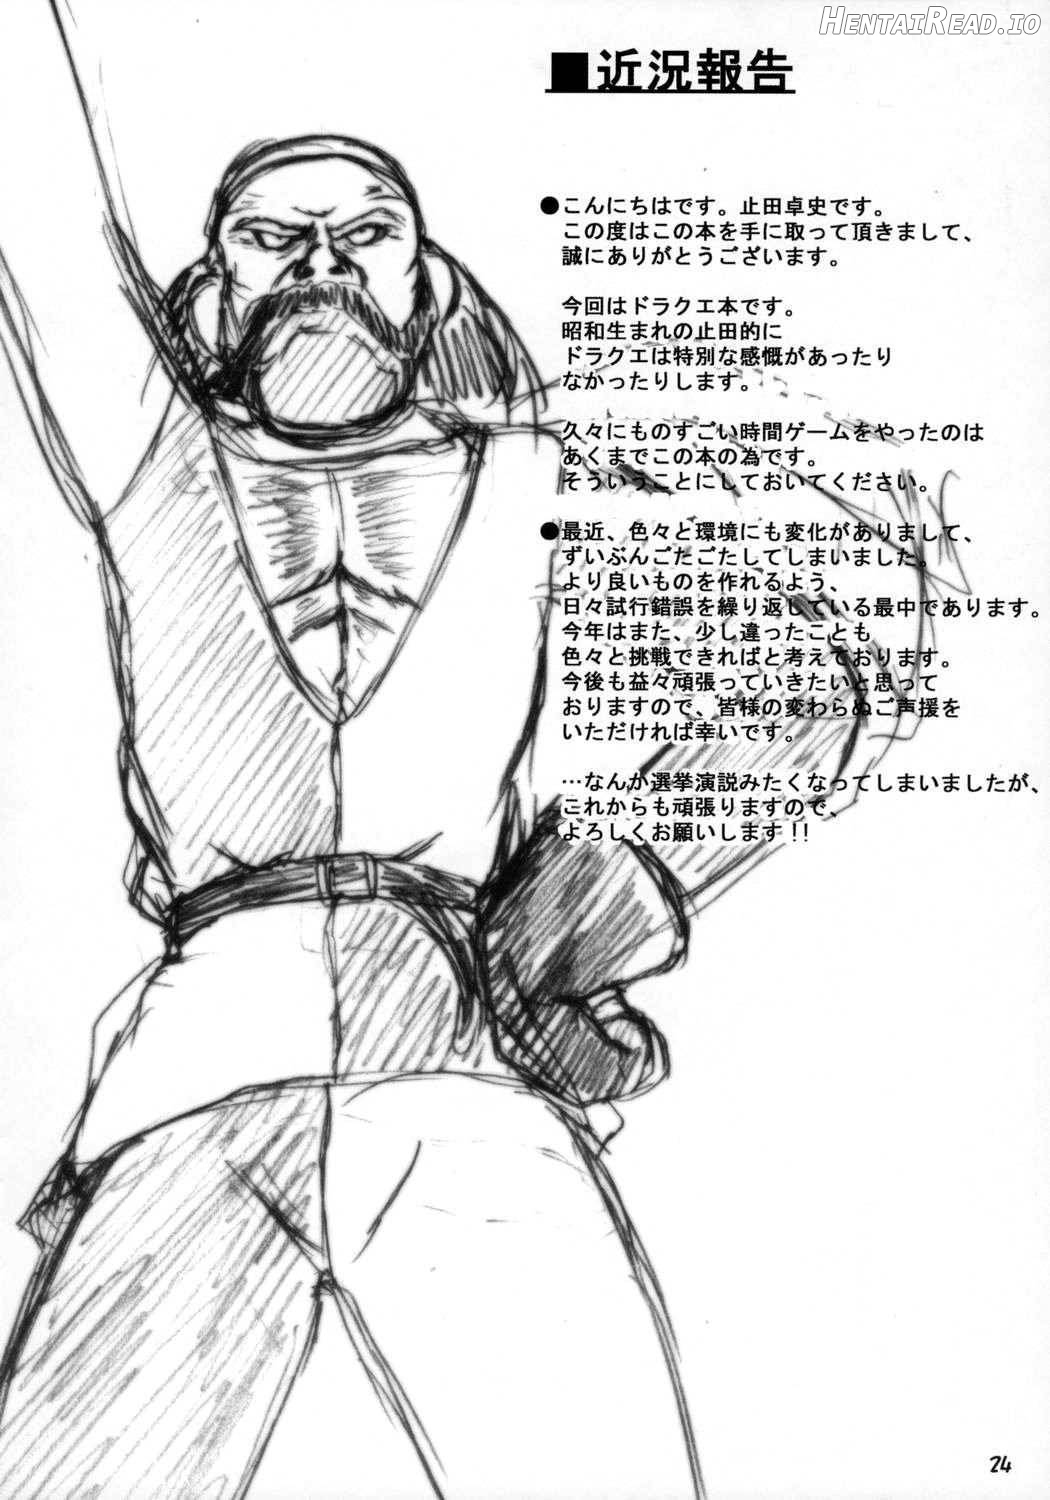 HENTAIREAD.IO
■近況報告
●こんにちはです。止田卓史です。
この度はこの本を手に取って頂きまして、
誠にありがとうございます。
今回はドラクエ本です。
昭和生まれの止田的に
ドラクエは特別な感慨があったり
なかったりします。
久々にものすごい時間ゲームをやったのは
あくまでこの本の為です。
そういうことにしておいてください。
●最近、色々と環境にも変化がありまして、
ずいぶんごたごたしてしまいました。
より良いものを作れるよう、
日々試行錯誤を繰り返している最中であります。
今年はまた、少し違ったことも
色々と挑戦できればと考えております。
今後も益々頑張っていきたいと思って
おりますので、皆様の変わらぬご声援を
いただければ幸いです。
…なんか選挙演説みたくなってしまいましたが、
これからも頑張りますので、
よろしくお願いします!!
24